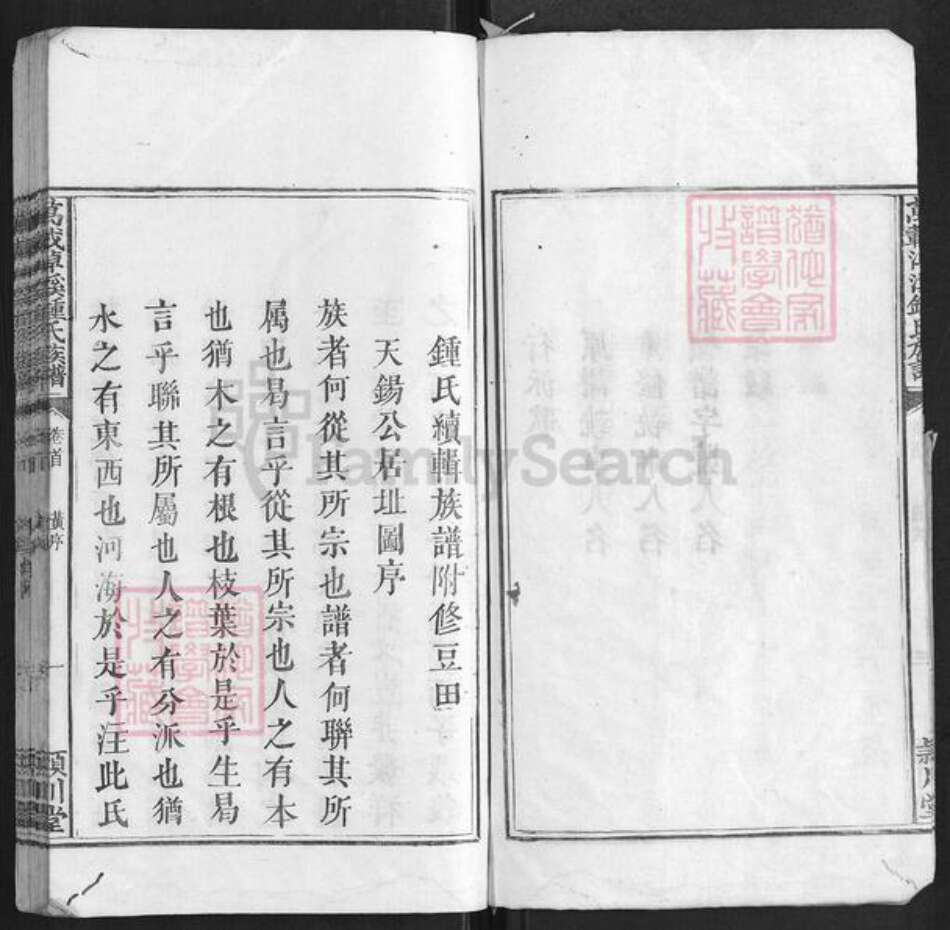 萬載潭溪鍾氏族譜
潁川堂
鍾氏續輯族譜附修豆田
天錫公居址圖序
族者何從其所宗也譜者何聯其所
属也曷言乎從其所宗也人之有本
也猶木之有根也枝葉於是乎生曷
言乎聯其所屬也人之有分派也猶
水之有東西也河海於是乎注此氏
萬載潭溪鍾氏族譜
卷首
序
一
潁川堂
FamilySearch